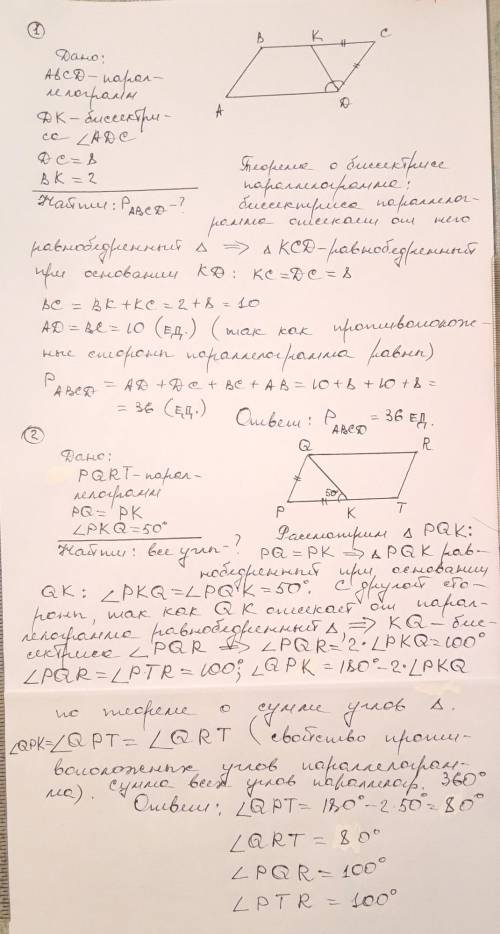 1
B K C
A D
Дано:
ABCD – парал-
лелограмм
DK – биссектри-
са ∠ADC
DC = 8
BK = 2
Найти: P ABCD – ?
Теорема о биссектрисе
параллелограмма:
биссектриса параллелог-
рамма отсекает от него
равнобедренный Δ ⟹ Δ KCD – равнобедренный
при основании KD: KC = DC = 8
BC = BK + KC = 2 + 8 = 10
AD = BC = 10 (ед.) (так как противополож-
ные стороны параллелограмма равны)
P ABCD = AD + DC + BC + AB = 10 + 8 + 10 + 8 =
= 36 (ед.)
Ответ: P ABCD = 36 ед.
2
Q R
50°
P K T
Дано:
PQRT – парал-
лелограмм
PQ = PK
∠PKQ = 50°
Найти: все углы – ?
Рассмотрим Δ PQK:
PQ = PK ⟹ Δ PQK рав-
нобедренный при основании
QK: ∠PKQ = ∠PQK = 50°. С другой сто-
роны, так как QK отсекает от парал-
лелограмма равнобедренный Δ, ⟹ KQ – бис-
сектриса ∠PQR ⟹ ∠PQR = 2·∠PKQ = 100°
∠PQR = ∠PTR = 100°; ∠QPK = 180° – 2·∠PKQ
по теореме о сумме углов Δ.
∠QPK = ∠QPT = ∠QRT (свойство проти-
воположных углов параллелограм-
ма). Сумма всех углов параллелогр. 360°
Ответ: ∠QPT = 180° – 2·50° = 80°
∠QRT = 80°
∠PQR = 100°
∠PTR = 100°